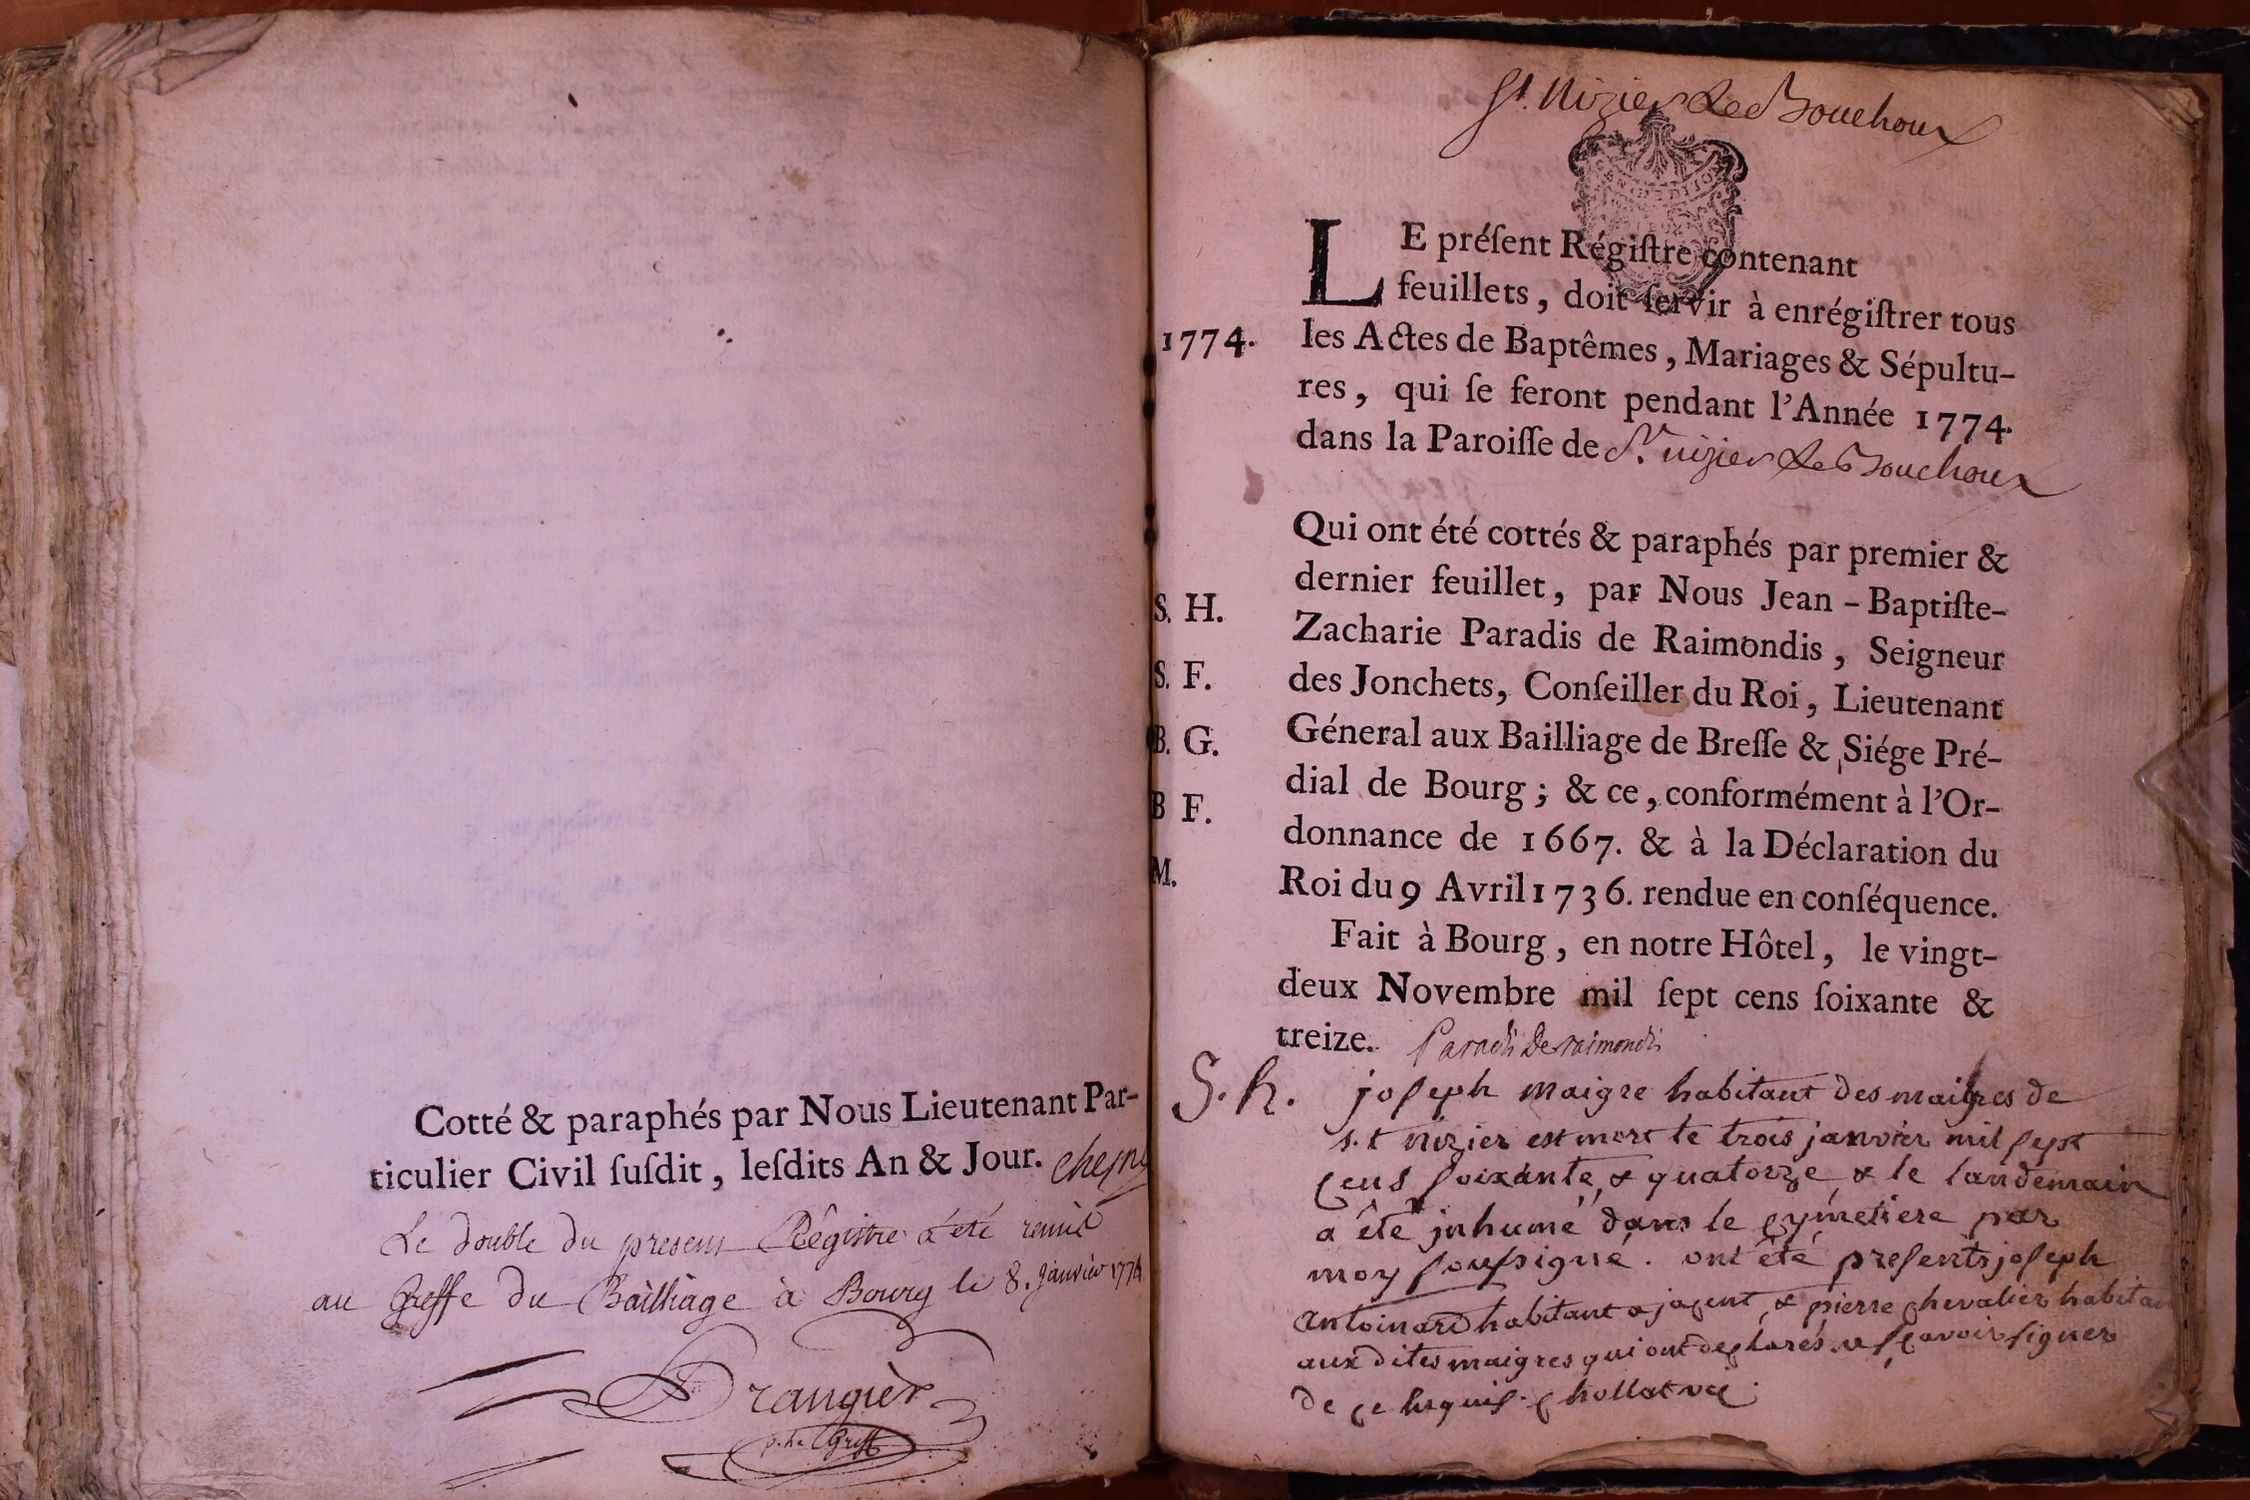 Cotté & paraphés par Nous Lieutenant Par-
ticulier Civil ſuſdit, leſdits An & Jour. cheſne
Le double du present Régistre a été remis
au Greffe du Bailliage à Bourg le 8. janvier 1774
Drangier
St. Nizier Le Bouchoux
LE préſent Régiſtre contenant
feuillets, doit ſervir à enrégiſtrer tous
1774. les Actes de Baptêmes, Mariages & Sépultu-
res, qui ſe feront pendant l'Année 1774.
dans la Paroiſſe de St. nizier Le Bouchoux
Qui ont été cottés & paraphés par premier &
dernier feuillet, par Nous Jean-Baptiſte-
S. H. Zacharie Paradis de Raimondis, Seigneur
S. F. des Jonchets, Conſeiller du Roi, Lieutenant
B. G. Géneral aux Bailliage de Breſſe & Siége Pré-
B F. dial de Bourg; & ce, conformément à l'Or-
donnance de 1667. & à la Déclaration du
M. Roi du 9 Avril 1736. rendue en conſéquence.
Fait à Bourg, en notre Hôtel, le vingt-
deux Novembre mil ſept cens ſoixante &
treize. Paradis De raimondis
S. h. joſeph maigre habitant des maigres de
s.t nizier est mort le trois janvier mil ſept
cens ſoixante & quatorze & le landemain
a été inhumé dans le cymetiere par
moy ſouſsigné. ont été preſents joſeph
antoinard habitant a jacent & pierre chevalier habitan
aux dites maigres qui ont declarés ne ſçavoir ſigner
de ce requis. chollat vic.